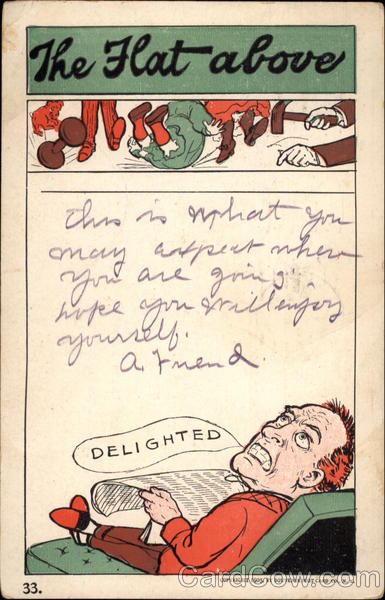 The Flat above
this is what you
may expect when
you are going
hope you will enjoy
yourself.
A Friend.
DELIGHTED
33.
CardCow.com